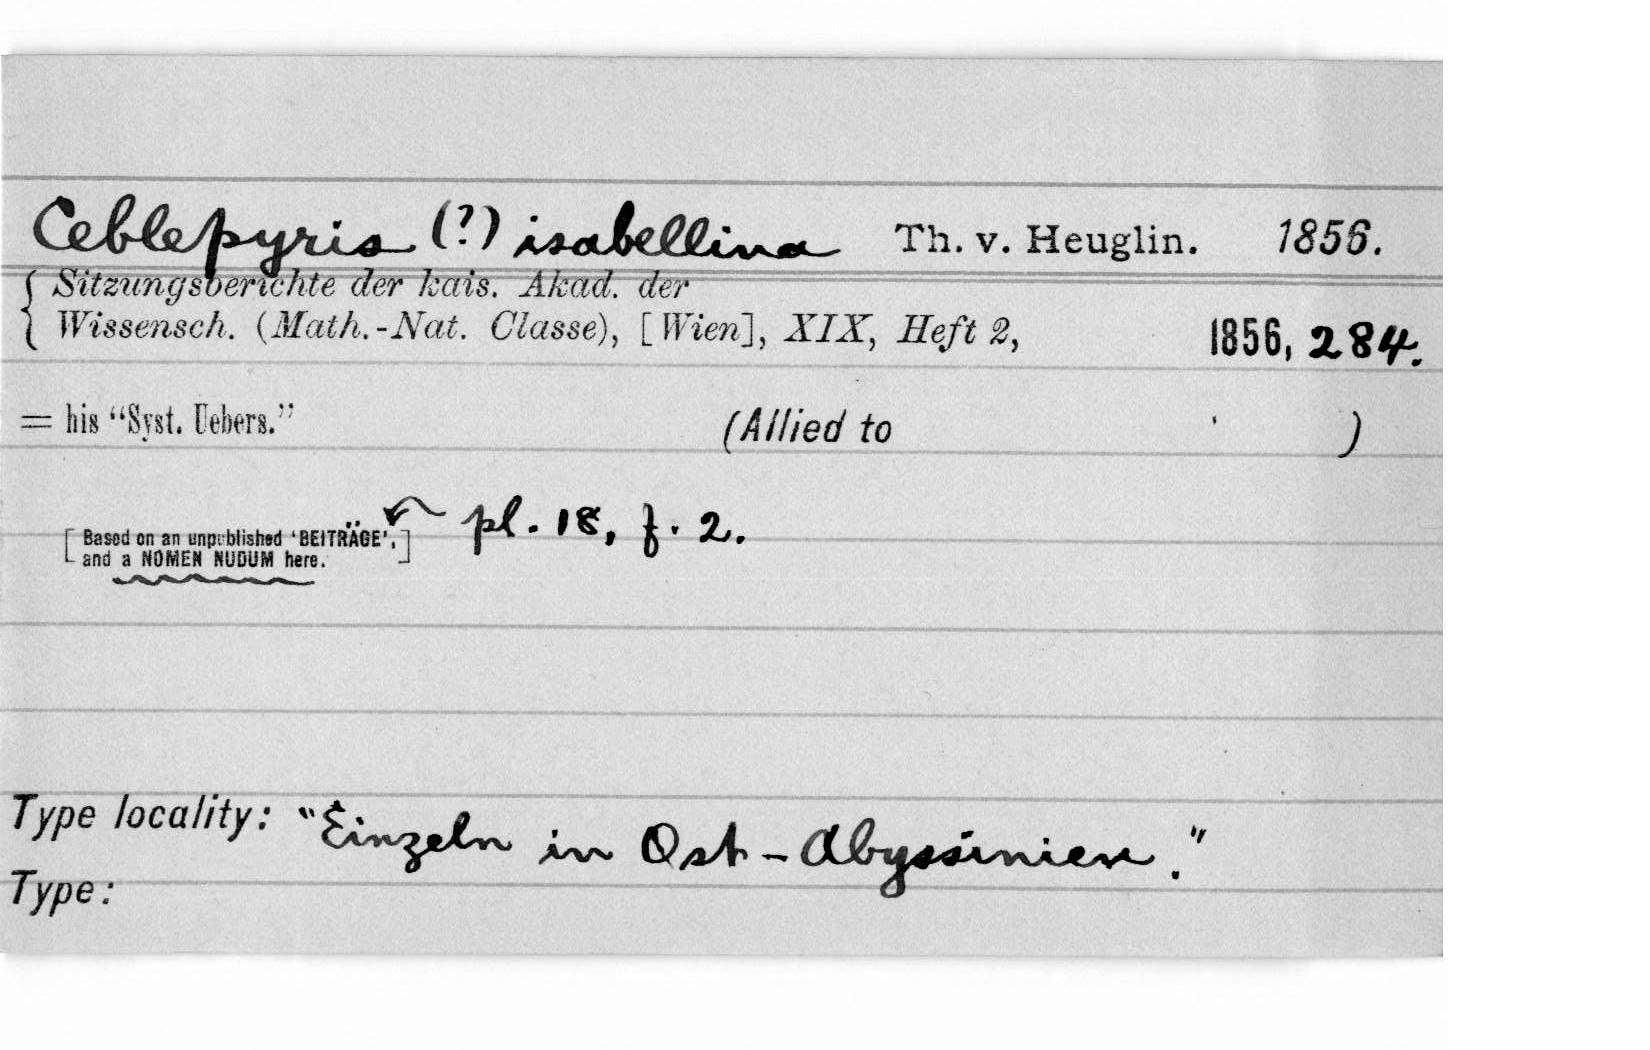 Ceblepyris (?) isabellina Th. v. Heuglin. 1856.
Sitzungsberichte der kais. Akad. der
Wissensch. (Math.-Nat. Classe), [Wien], XIX, Heft 2, 1856, 284.
= his “Syst. Uebers.” (Allied to )
[Based on an unpublished ‘BEITRÄGE’, pl. 18, f. 2.
and a NOMEN NUDUM here.]
Type locality: "Einzeln in Ost-Abyssinien."
Type: